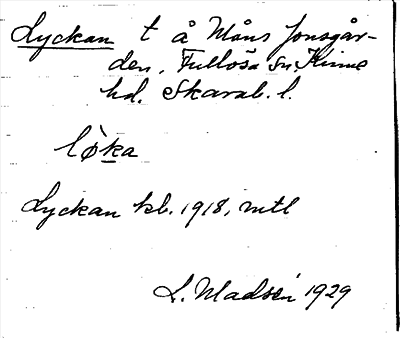 Lyckan t å Måns Jonsgår-
den, Fullösa sn. Kinne
hd. Skarab. l.
lø̀ka
Lyckan kb. 1918, mtl
L. Madsén 1929